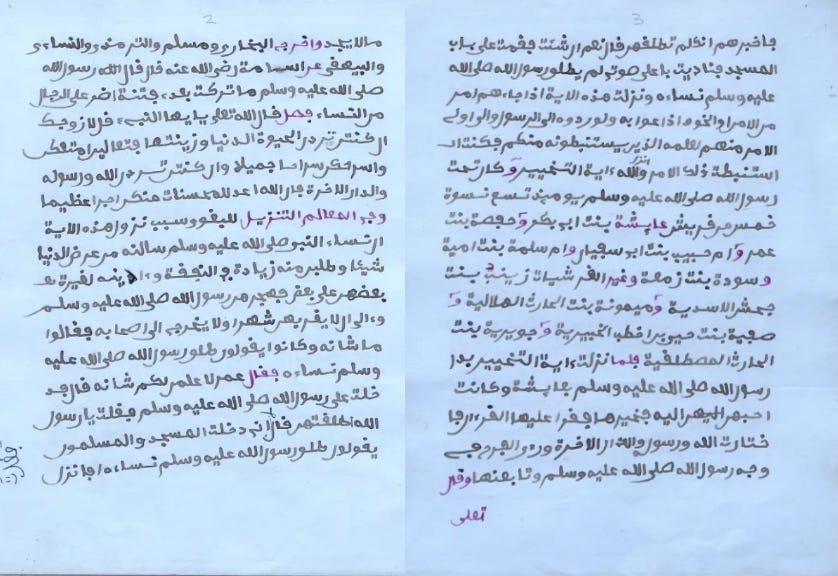 2
مالا يجد واخرجه البخاري ومسلم والترمذي والنساءي
والبيهقي عن اسامة رضى الله عنه قال قال رسول الله
صلى الله عليه وسلم ما تركت بعدي فتنة اضر على الرجال
من النساء فصل قال الله تعلى يايها النبيء قل لازوجك
ان كنتن تردن الحيوة الدنيا وزينتها فتعالين امتعكن
واسرحكن سراحا جميلا وان كنتن تردن الله ورسوله
والدار الاخرة فان الله اعد للمحسنات منكن اجرا عظيما
وفي المعالم التنزيل للبغوي سبب نزول هذه الاية
ان نساء النبي صلى الله عليه وسلم سالنه من عرض الدنيا
شيئا وطلبن منه زيادة في النفقة وءاذينه لغيرة
بعضهن على بعض فهجرهن رسول الله صلى الله عليه وسلم
وءالى ان لا يقربهن شهرا ولا يخرج الى اصحابه فقالوا
ما شانه وكانوا يقولون طلق رسول الله صلى الله عليه
وسلم نساءه فقال عمر لاعلمن لكم شانه قال فد
خلت على رسول الله صلى الله عليه وسلم فقلت يا رسول
الله اطلقتهن قال لا اني دخلت المسجد والمسلمون
يقولون طلق رسول الله عليه وسلم نساءه افانزل
فقلت
3
فاخبرهم انك لم تطلقهن قال نعم ان شئت فقمت على باب
المسجد فناديت باعلى صوتي لم يطلق رسول الله صلى الله
عليه وسلم نساءه ونزلت هذه الاية اذا جاءهم امر
من الامن او الخوف اذاعوا به ولو ردوه الى الرسول والى اولى
الامر منهم لعلمه الذين يستنبطونه منهم فكنت انا
استنبطة ذلك الامر وانزل الله ءاية التخيير وكان تحت
رسول الله صلى الله عليه وسلم يوميذ تسع نسوة
خمس من قريش عايشة بنت ابي بكر وحفصة بنت
عمر وام حبيب بنت ابو سفيان وام سلمة بنت امية
وسودة بنت زمعة وغير القرشيات زينب بنت
جحش الاسدية وميمونة بنت الحارث الهلالية و
صفية بنت حيي بن اخطب الخيبرية وجويرية بنت
الحارث المصطلقية فلما نزلت ءاية التخيير بدا
رسول الله صلى الله عليه وسلم بعايشة وكانت
احبهن اليه فخيرها فقرا عليها القرءان فا
ختارت الله ورسوله والدار الاخرة وروي الفرح في
وجه رسول الله صلى الله عليه وسلم وتابعنها وقال
تعلى